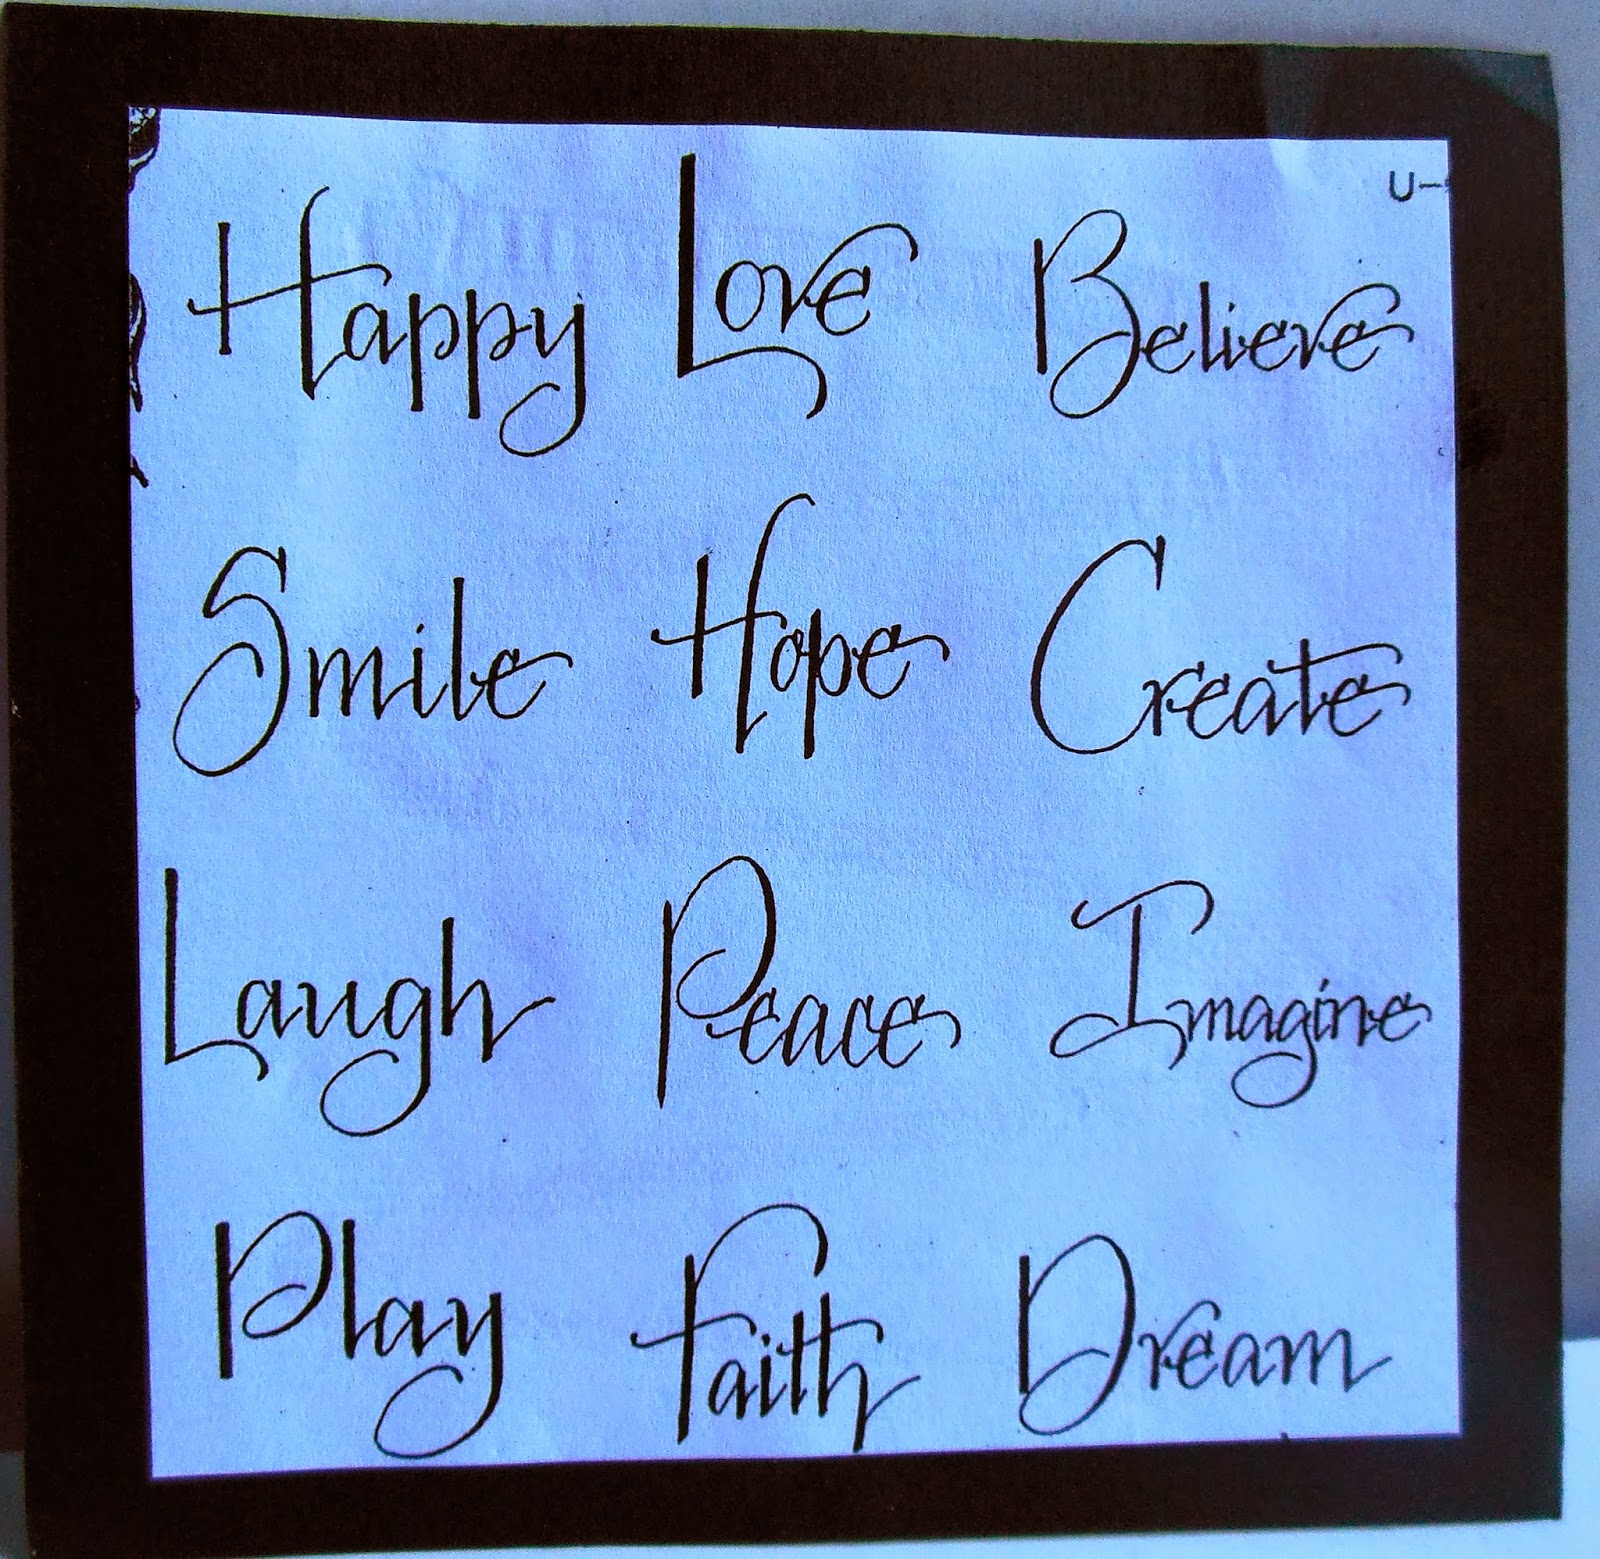 U-
Happy Love Believe
Smile Hope Create
Laugh Peace Imagine
Play Faith Dream